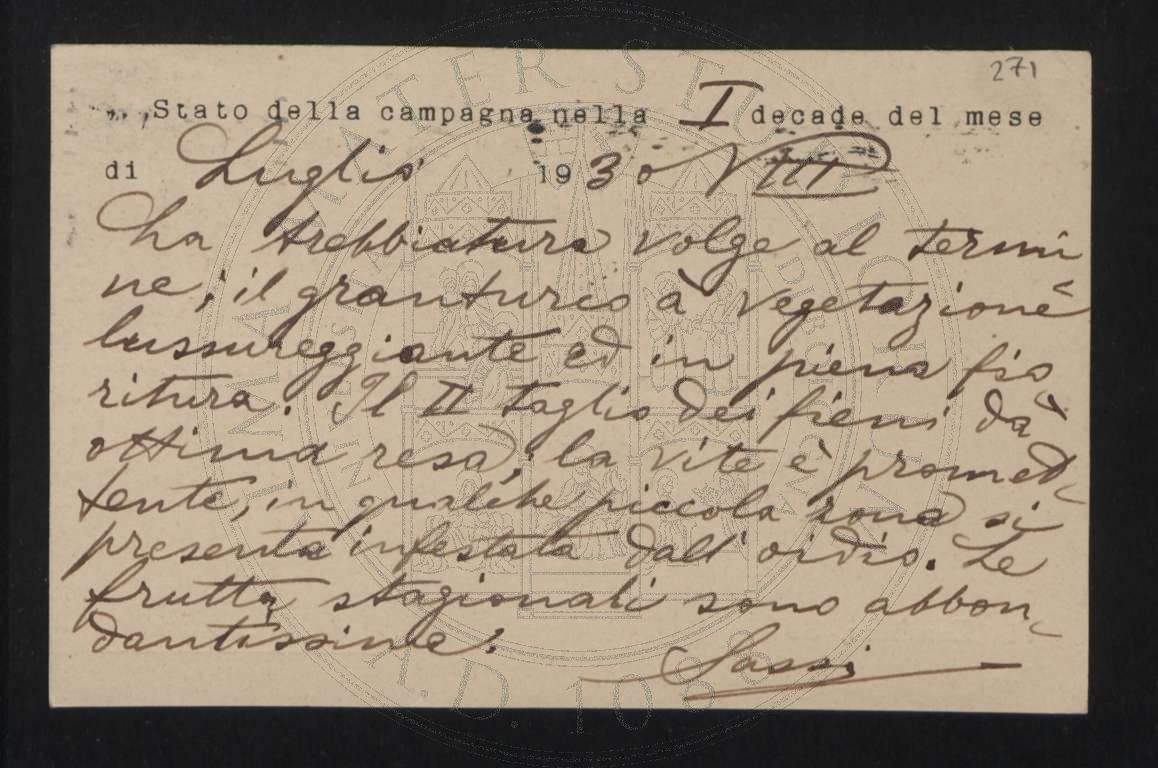 271
Stato della campagna nella I decade del mese
di Luglio 1930 VIII
La trebbiatura volge al termi
ne; il granturco à vegetazione
lussureggiante ed in piena fio
ritura. Il II taglio dei fieni dà
ottima resa; la vite è promet-
tente, in qualche piccola zona si
presenta infestata dall'oidio. Le
frutta stagionali sono abbon-
dantissime.
Sassi
ALMA MATER STUDIORUM
A.D. 1088